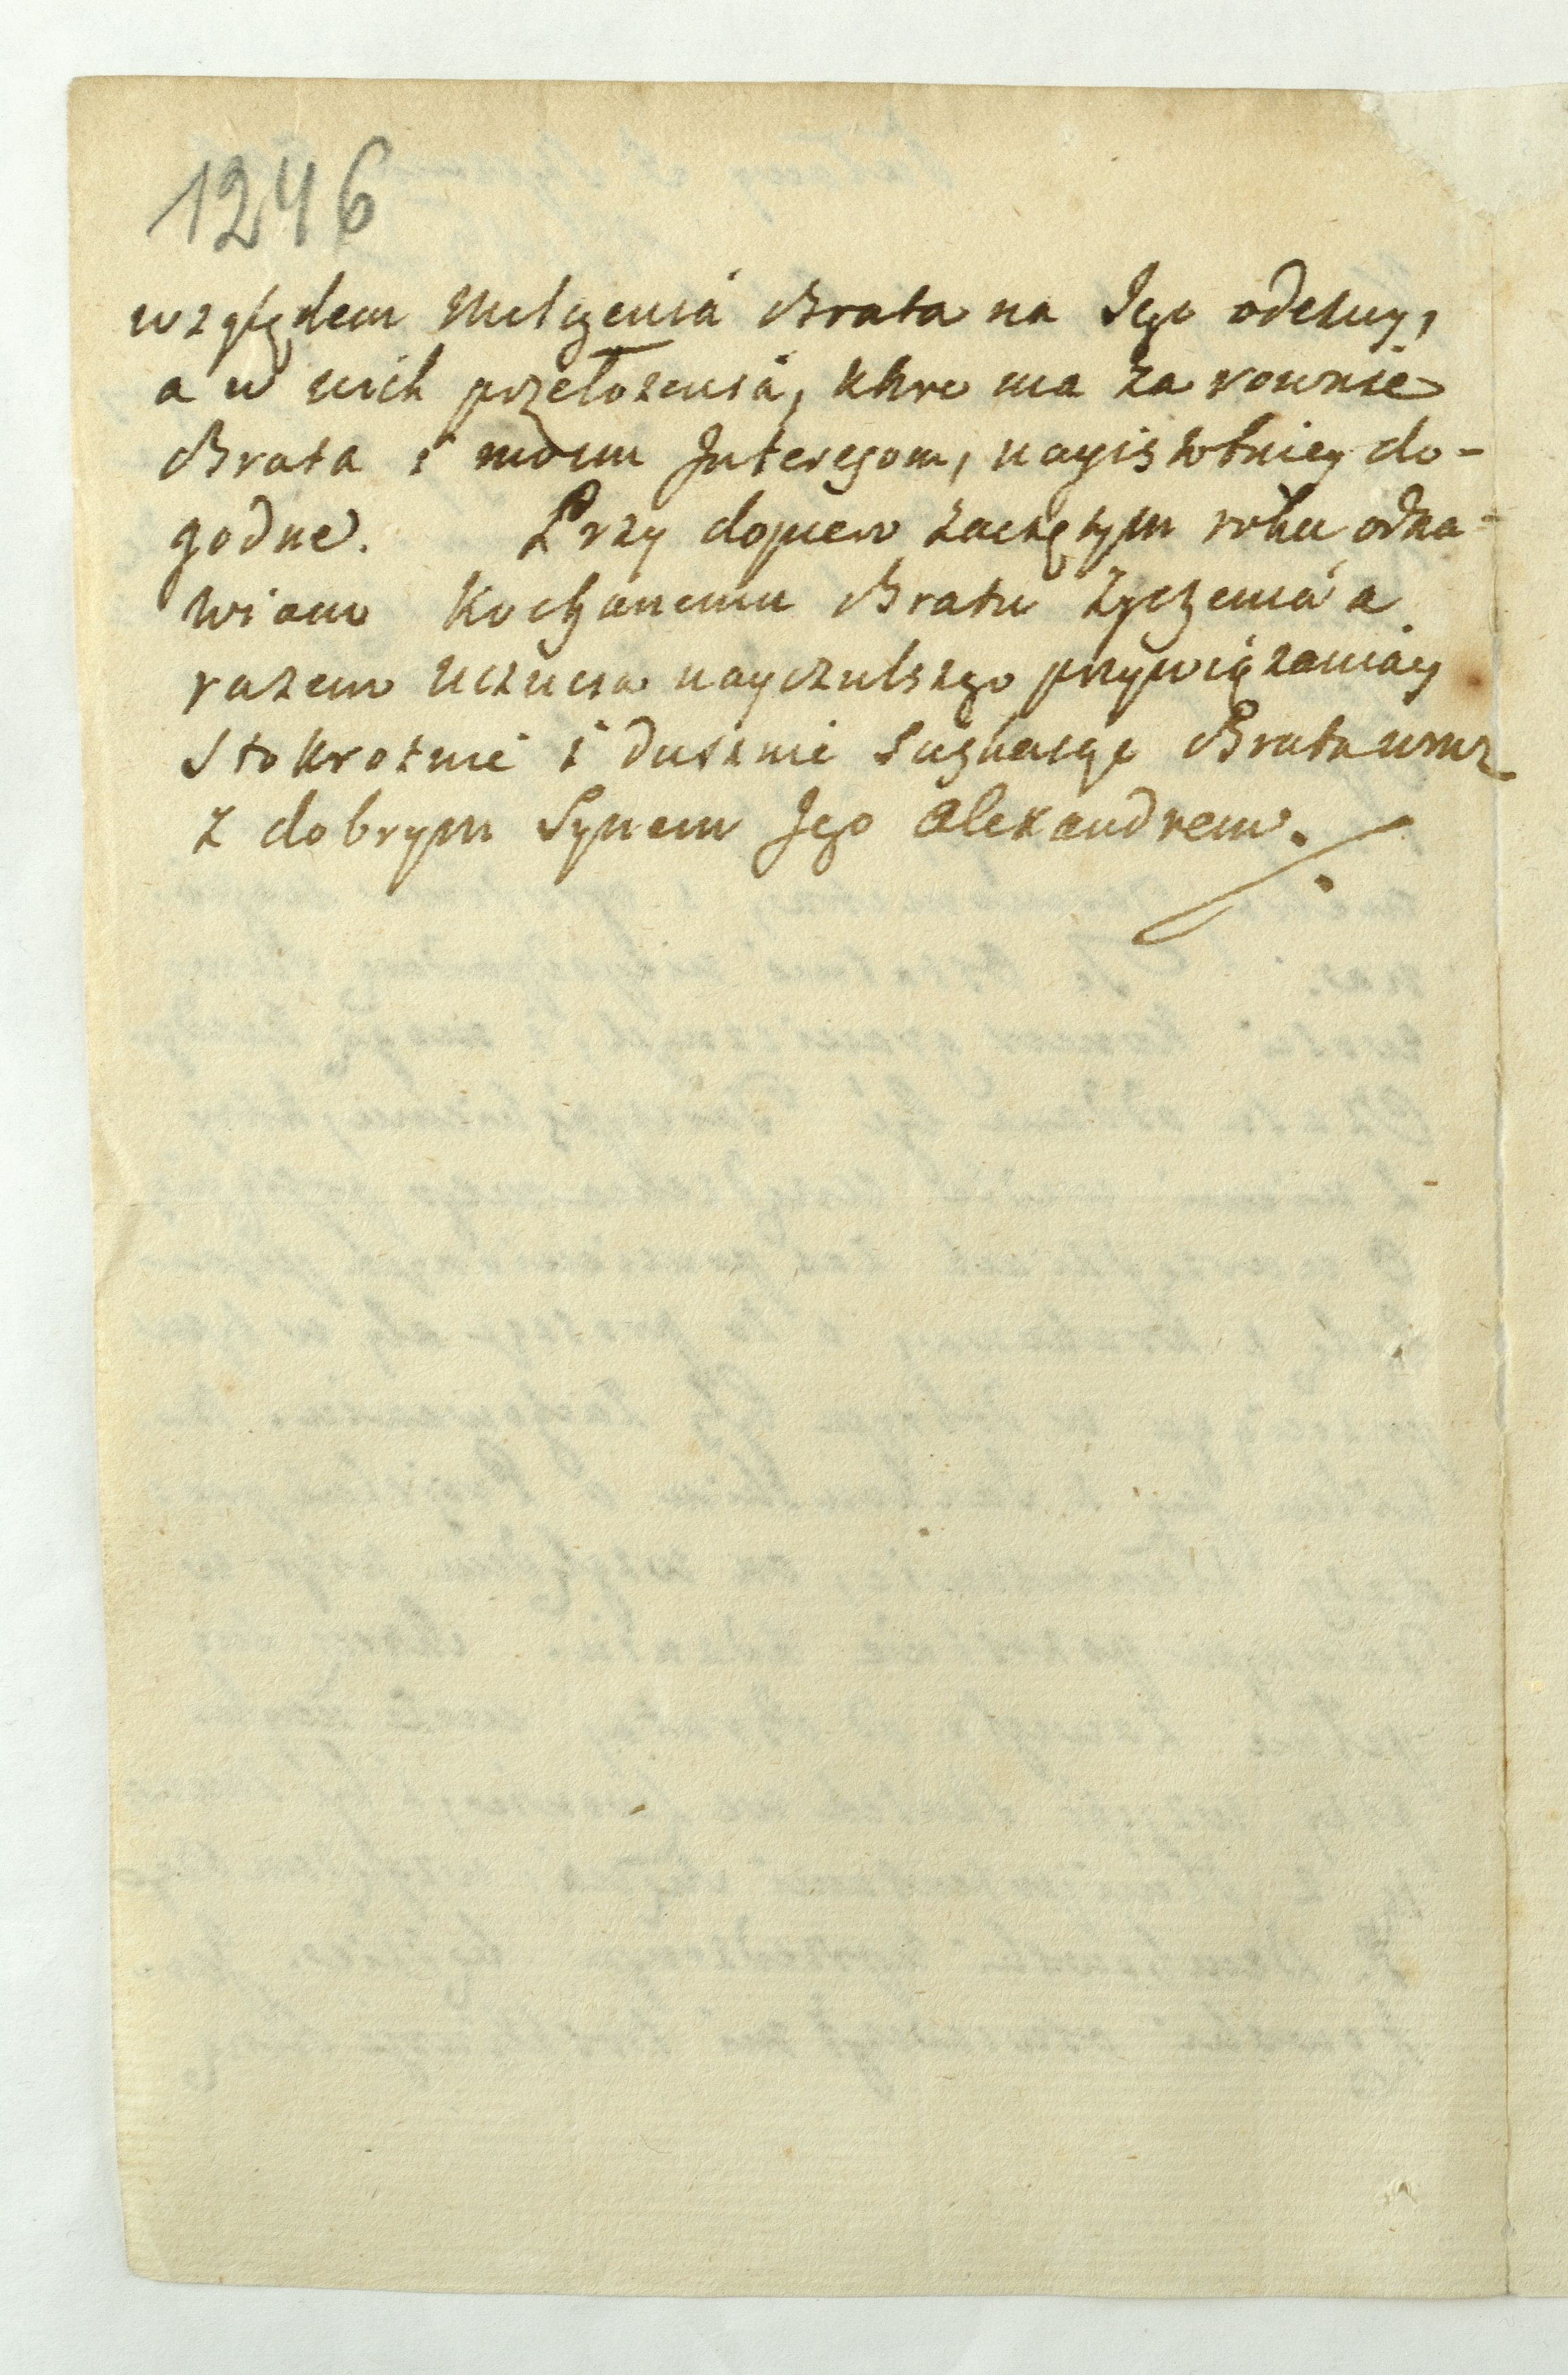 1246
względem Milczenia Brata na Jego odezwy,
a w nich przełożenia, które ma za rownie
Brata i moim Interesom, nayistotniey do-
godne. Przy dopiero zaczętym roku odna-
wiam Kochanemu Bratu życzenia a
razem uczucia nayczulszego przywiązania y
Stokrotnie i dusznie Sciskaiąc Brata wraz
z dobrym Synem Jego Alexandrem.